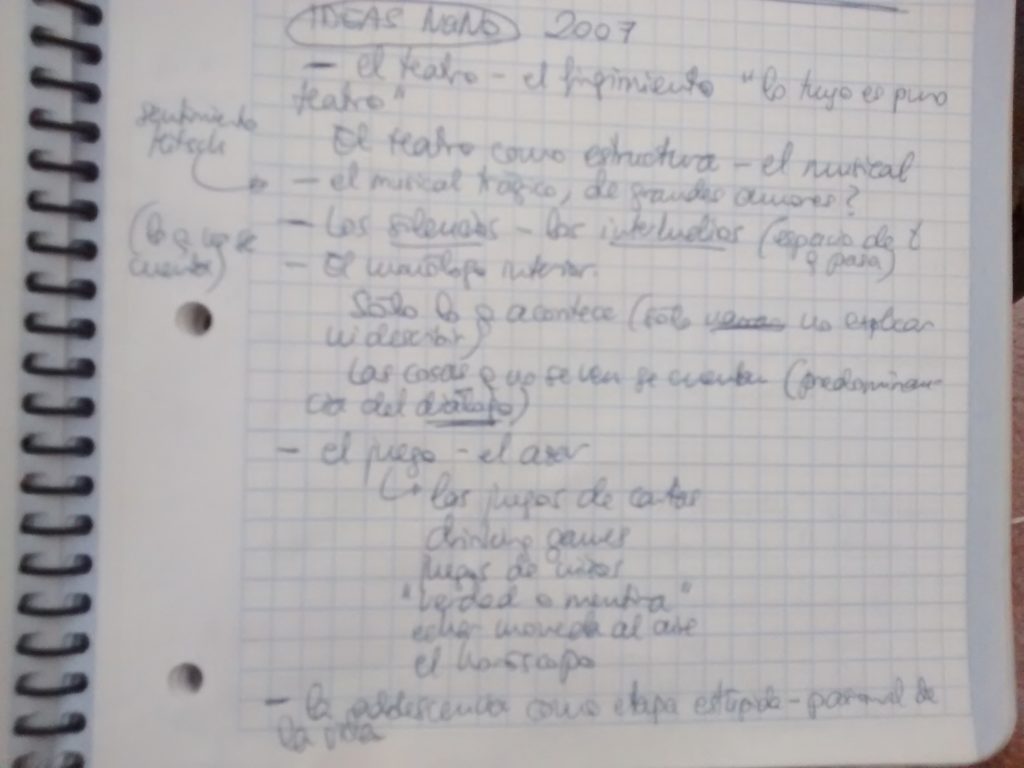 IDEAS NaNo 2007
- el teatro - el fingimiento "lo tuyo es puro
teatro"
El teatro como estructura - el musical
sentimiento
kitsch
- el musical trágico, de grandes amores?
- Los silencios - los interludios (espacio de t
q pasa)
(lo q no se
cuenta)
- El monólogo interior.
Sólo lo q acontece (sólo no explicar
ni describir)
Las cosas q no se ven se cuentan (predominan-
cia del diálogo)
- el juego - el azar
los juegos de cartas
drinking games
juegos de niños
"Verdad o mentira"
echar moneda al aire
el horóscopo
- la adolescencia como etapa estúpida - de
la vida